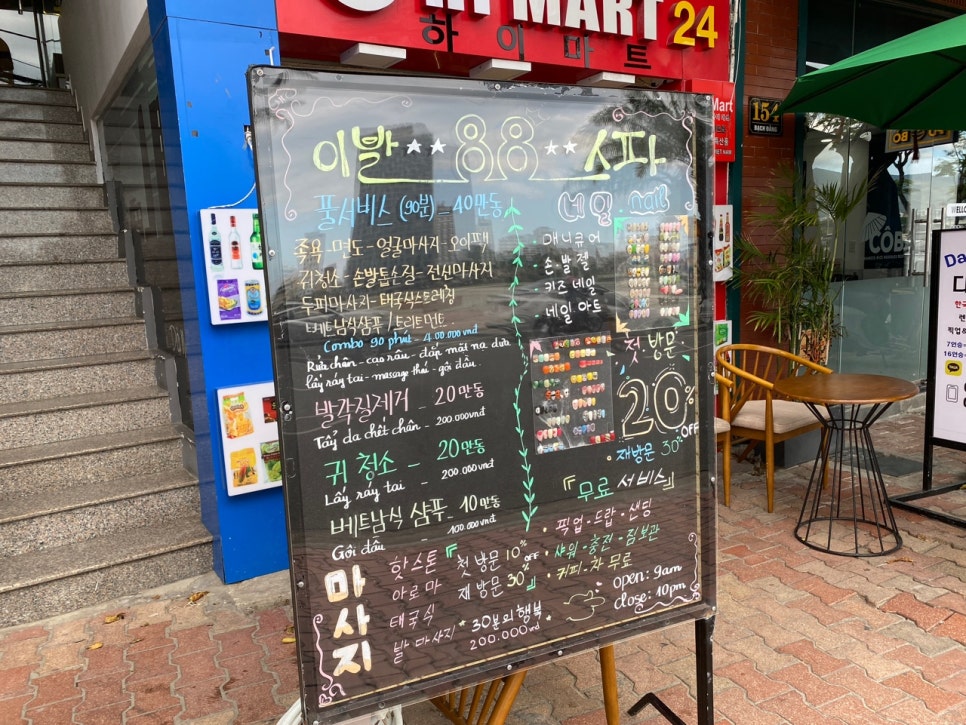 MART 24
하이마트
Mart
154
BẠCH ĐẰNG
이발 88 스파
풀서비스 (90분) _ 40만동
족욕 - 면도 - 얼굴마사지 - 오이팩
귀청소 - 손발톱손질 - 전신마사지
두피마사지 - 태국식스트레칭
베트남식샴푸 / 트리트먼트
Combo 90 phút _ 400.000vnđ
Rửa chân - cạo râu - đắp mặt nạ dưa
lấy ráy tai - massage thái - gội đầu.
발각질제거 _ 20만동
Tẩy da chết chân _ 200.000vnđ
귀 청소 _ 20만동
Lấy ráy tai _ 200.000vnđ
베트남식 샴푸 _ 10만동
Gội đầu _ 100.000vnđ
네일 nail
· 매니큐어
· 손발젤
· 키즈네일
· 네일아트
첫 방문
20% OFF
재방문 30% OFF
『무료 서비스』
· 픽업 - 드랍 - 샌딩
· 샤워 - 충전 - 짐보관
· 커피 - 차 무료
open: 9am
close: 10pm
마사지
핫스톤
아로마
태국식
발마사지
『첫 방문 10% OFF
재 방문 30%』
* 30분의 행복 *
200.000vnđ
CÔB
WELC
Da